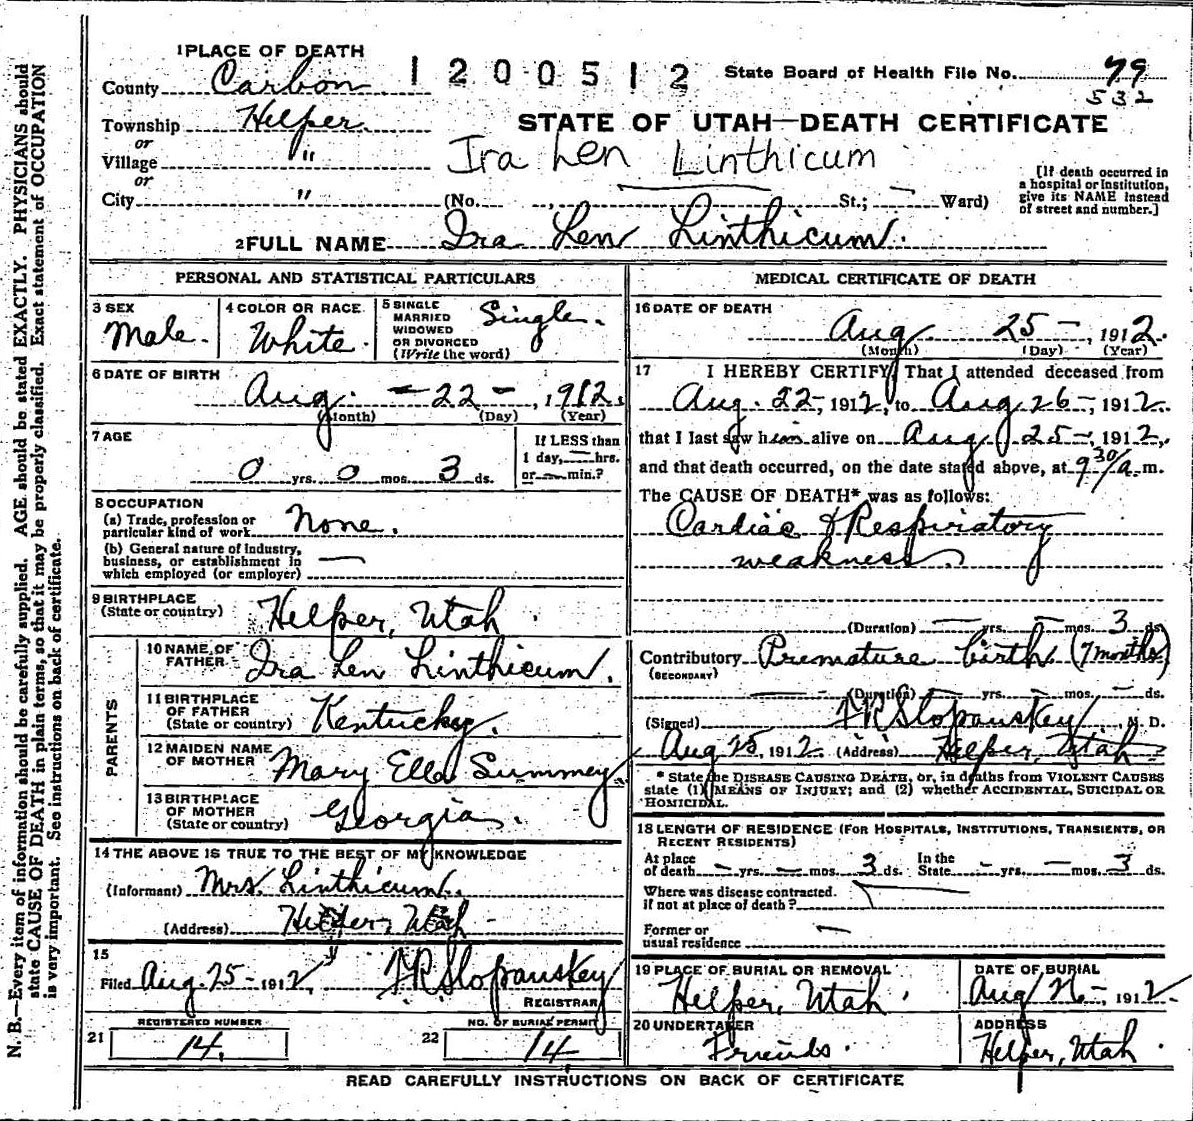 1 PLACE OF DEATH
1200512
State Board of Health File No. 79
532
County Carbon
Township Helper.
or
Village "
or
City "
STATE OF UTAH—DEATH CERTIFICATE
Ira Len Linthicum
(No. , St.; Ward)
[If death occurred in
a hospital or institution,
give its NAME instead
of street and number.]
2 FULL NAME Ira Len Linthicum.
PERSONAL AND STATISTICAL PARTICULARS
3 SEX
Male.
4 COLOR OR RACE
White.
5 SINGLE
MARRIED
WIDOWED
OR DIVORCED
(Write the word)
Single.
6 DATE OF BIRTH
Aug. - 22 - , 1912.
(Month) (Day) (Year)
7 AGE
0 yrs. 0 mos. 3 ds.
If LESS than
1 day, — hrs.
or — min.?
8 OCCUPATION
(a) Trade, profession or
particular kind of work None.
(b) General nature of industry,
business, or establishment in
which employed (or employer) —
9 BIRTHPLACE
(State or country) Helper, Utah.
PARENTS
10 NAME OF
FATHER Ira Len Linthicum.
11 BIRTHPLACE
OF FATHER
(State or country) Kentucky.
12 MAIDEN NAME
OF MOTHER Mary Ella Summey.
13 BIRTHPLACE
OF MOTHER
(State or country) Georgia.
14 THE ABOVE IS TRUE TO THE BEST OF MY KNOWLEDGE
(Informant) Mrs. Linthicum.
(Address) Helper, Utah -
15
Filed Aug. 25 - 1912, F R Slopanskey
REGISTRAR
REGISTERED NUMBER
21 14.
NO. OF BURIAL PERMIT
22 14
MEDICAL CERTIFICATE OF DEATH
16 DATE OF DEATH
Aug. 25 - , 1912.
(Month) (Day) (Year)
17 I HEREBY CERTIFY, That I attended deceased from
Aug. 22 -, 1912, to Aug. 26 -, 1912.
that I last saw him alive on Aug. 25 -, 1912.,
and that death occurred, on the date stated above, at 9 30/a. m.
The CAUSE OF DEATH* was as follows:
Cardiac & Respiratory
weakness.
(Duration) — yrs. — mos. 3 ds.
Contributory Premature birth (7 months)
(SECONDARY)
(Duration) — yrs. — mos. — ds.
(Signed) F R Slopanskey, M. D.
Aug 25, 1912 (Address) Helper, Utah
* State the DISEASE CAUSING DEATH, or, in deaths from VIOLENT CAUSES
state (1) MEANS OF INJURY; and (2) whether ACCIDENTAL, SUICIDAL OR
HOMICIDAL.
18 LENGTH OF RESIDENCE (FOR HOSPITALS, INSTITUTIONS, TRANSIENTS, OR
RECENT RESIDENTS)
At place
of death — yrs. — mos. 3 ds. In the
State — yrs. — mos. 3 ds.
Where was disease contracted.
if not at place of death?
Former or
usual residence —
19 PLACE OF BURIAL OR REMOVAL
Helper, Utah.
DATE OF BURIAL
Aug 26 -, 1912.
20 UNDERTAKER
Friends.
ADDRESS
Helper, Utah.
READ CAREFULLY INSTRUCTIONS ON BACK OF CERTIFICATE
N. B.—Every item of information should be carefully supplied. AGE should be stated EXACTLY. PHYSICIANS should
state CAUSE OF DEATH in plain terms, so that it may be properly classified. Exact statement of OCCUPATION
is very important. See instructions on back of certificate.